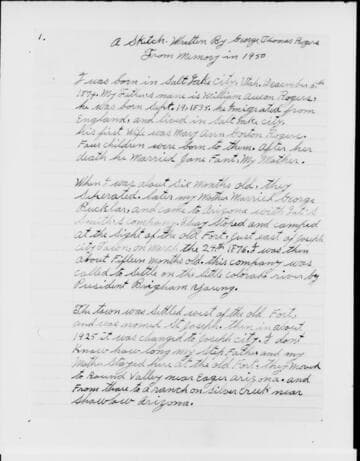 1.
A Sketch Written By George Thomas Rogers
From Memory in 1950
I was born in Salt Lake City, Utah, December 5th
1874. My Fathers name is William Auson Rogers.
he was born Sept. 19, 1835. he Imigrated from
England, and lived in Salt Lake city.
his first wife was Mary Ann Gorton Rogers.
Four children were born to them. After her
death he Married Jane Fant, My Mother.
When I was about six months old, they
seperated. later my Mother Married George
Bucklar, and came to Arizona with Lot
Smiths company. They stoped and camped
at the sight of the old Fort, just east of Joseph
City Town, on March the 24th 1876. I was then
about Fifteen months old. this company was
called to settle on the little colorado river by
President Brigham Young.
The town was settled west of the old Fort,
and was named St Joseph. then in about
1925 it was changed to Joseph city. I dont
know how long my Step Father and my
Mother stayed here at the old Fort. They Moved
to Round Valley near Eager arizona. and
From there to a ranch on Silver Creek near
Showlow Arizona.